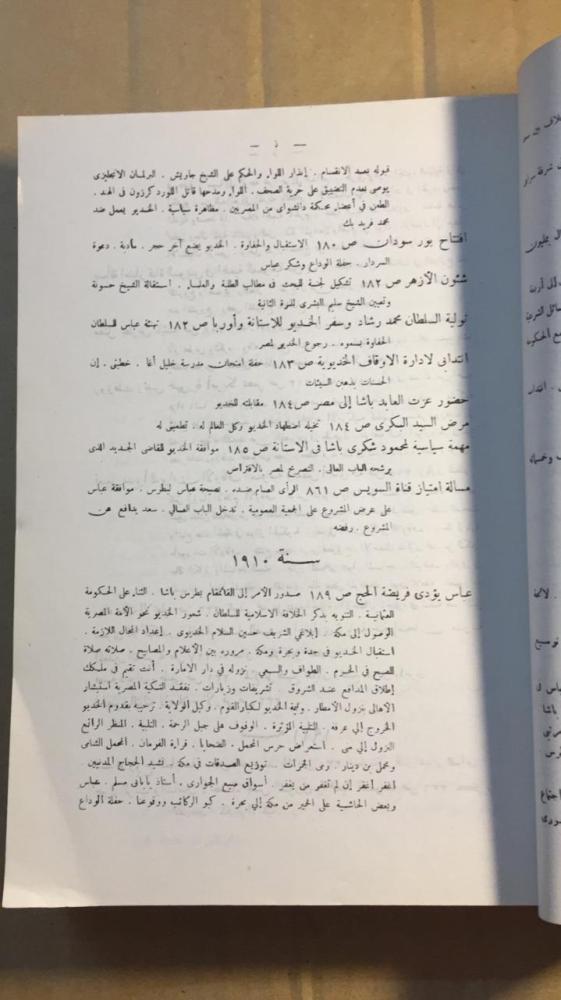 قبوله بعد الانقسام . إنذار اللواء والحكم على الشيخ جاويش . البرلمان الانجليزى
يوصى بعدم التضييق على حرية الصحف . اللواء ومدحها قاتل اللورد كرزون فى الهند .
الطعن فى أعضاء محكمة دنشواى من المصريين . مظاهرة سياسية . الخديو يعمل ضد
محمد فريد بك
افتتاح بور سودان ص ١٨٠ الاستقبال والحفاوة . الخديو يضع آخر حجر . مأدبة . دعوة
السردار . حفلة الوداع وشكر عباس
شئون الأزهر ص ١٨٢ تشكيل لجنة للبحث فى مطالب الطلبة والعلماء . استقالة الشيخ حسونة
وتعيين الشيخ سليم البشرى للمرة الثانية
تولية السلطان محمد رشاد وسفر الخديو للاستانة وأوربا ص ١٨٢ تهنئة عباس للسلطان
الحفاوة بسموه . رجوع الخديو لمصر
انتدابى لادارة الاوقاف الخديوية ص ١٨٣ حفلة امتحان مدرسة خليل أغا . خطبتى . إن
الحسنات يذهبن السيئات
حضور عزت العابد باشا إلى مصر ص ١٨٤ مقابلته للخديو
مرض السيد البكرى ص ١٨٤ تخيله اضطهاد الخديو وكل العالم له . تطمينى له
مهمة سياسية لمحمود شكرى باشا فى الاستانة ص ١٨٥ موافقة الخديو للقاضى الجديد الذى
يرشحه الباب العالى . التصريح لمصر بالاقتراض
مسالة امتياز قناة السويس ص ٨٦١ الرأى العام ضده . نصيحة عباس لبطرس . موافقة عباس
على عرض المشروع على الجمعية العمومية . تدخل الباب العالى . سعد يدافع عن
المشروع . رفضه
سنة ١٩١٠
عباس يؤدى فريضة الحج ص ١٨٩ صدور الامر إلى القائمقام بطرس باشا . الثناء على الحكومة
العثمانية . التنويه بذكر الخلافة الاسلامية للسلطان . شعور الخديو نحو الأمة المصرية
الوصول إلى مكة . إبلاغي الشريف حسين السلام الخديوى . إعداد المحال اللازمة .
استقبال الخديو فى جدة وبحرة ومكة . مروره بين الأعلام والمصابيح . صلاته صلاة
الصبح فى الحرم . الطواف والسعى . نزوله فى دار الامارة . أنت تقيم فى ملكك
إطلاق المدافع عند الشروق . تشريفات وزيارات . تفقد التكية المصرية استبشار
الأهالى بنزول الأمطار . وليمة الخديو لكبار القوم . وكيل الولاية . ترحيبه بقدوم الخديو
الخروج إلى عرفه . التلبية المؤثرة . الوقوف على جبل الرحمة . التلبية . المنظر الرائع
النزول إلى منى . استعراض حرس المحمل . الضحايا . قراءة الفرمان . المحمل الشامى
ومحمل بن دينار . رمى الجمرات . توزيع الصدقات فى مكة . نشيد الحجاج المدنيين
اغفر أغفر إن لم تغفر من يغفر . أسواق مبيع الجوارى . أستاذ يابانى مسلم . عباس
وبعض الحاشية على الحمير من مكة إلى بحرة . كبو الركائب ووقوعنا . حفلة الوداع